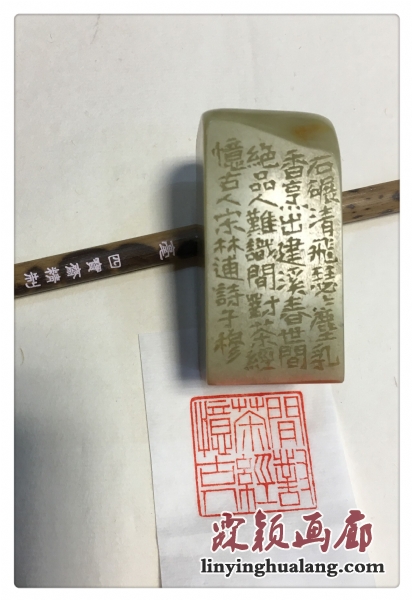 石碾清飛瑟〻塵乳
香烹出建溪春世間
絕品人難識間對茶經
憶古人宋林逋詩子穆
毫 四寶齋精制
間對
茶經
憶古人
霖颖画廊
linyinghualang.com